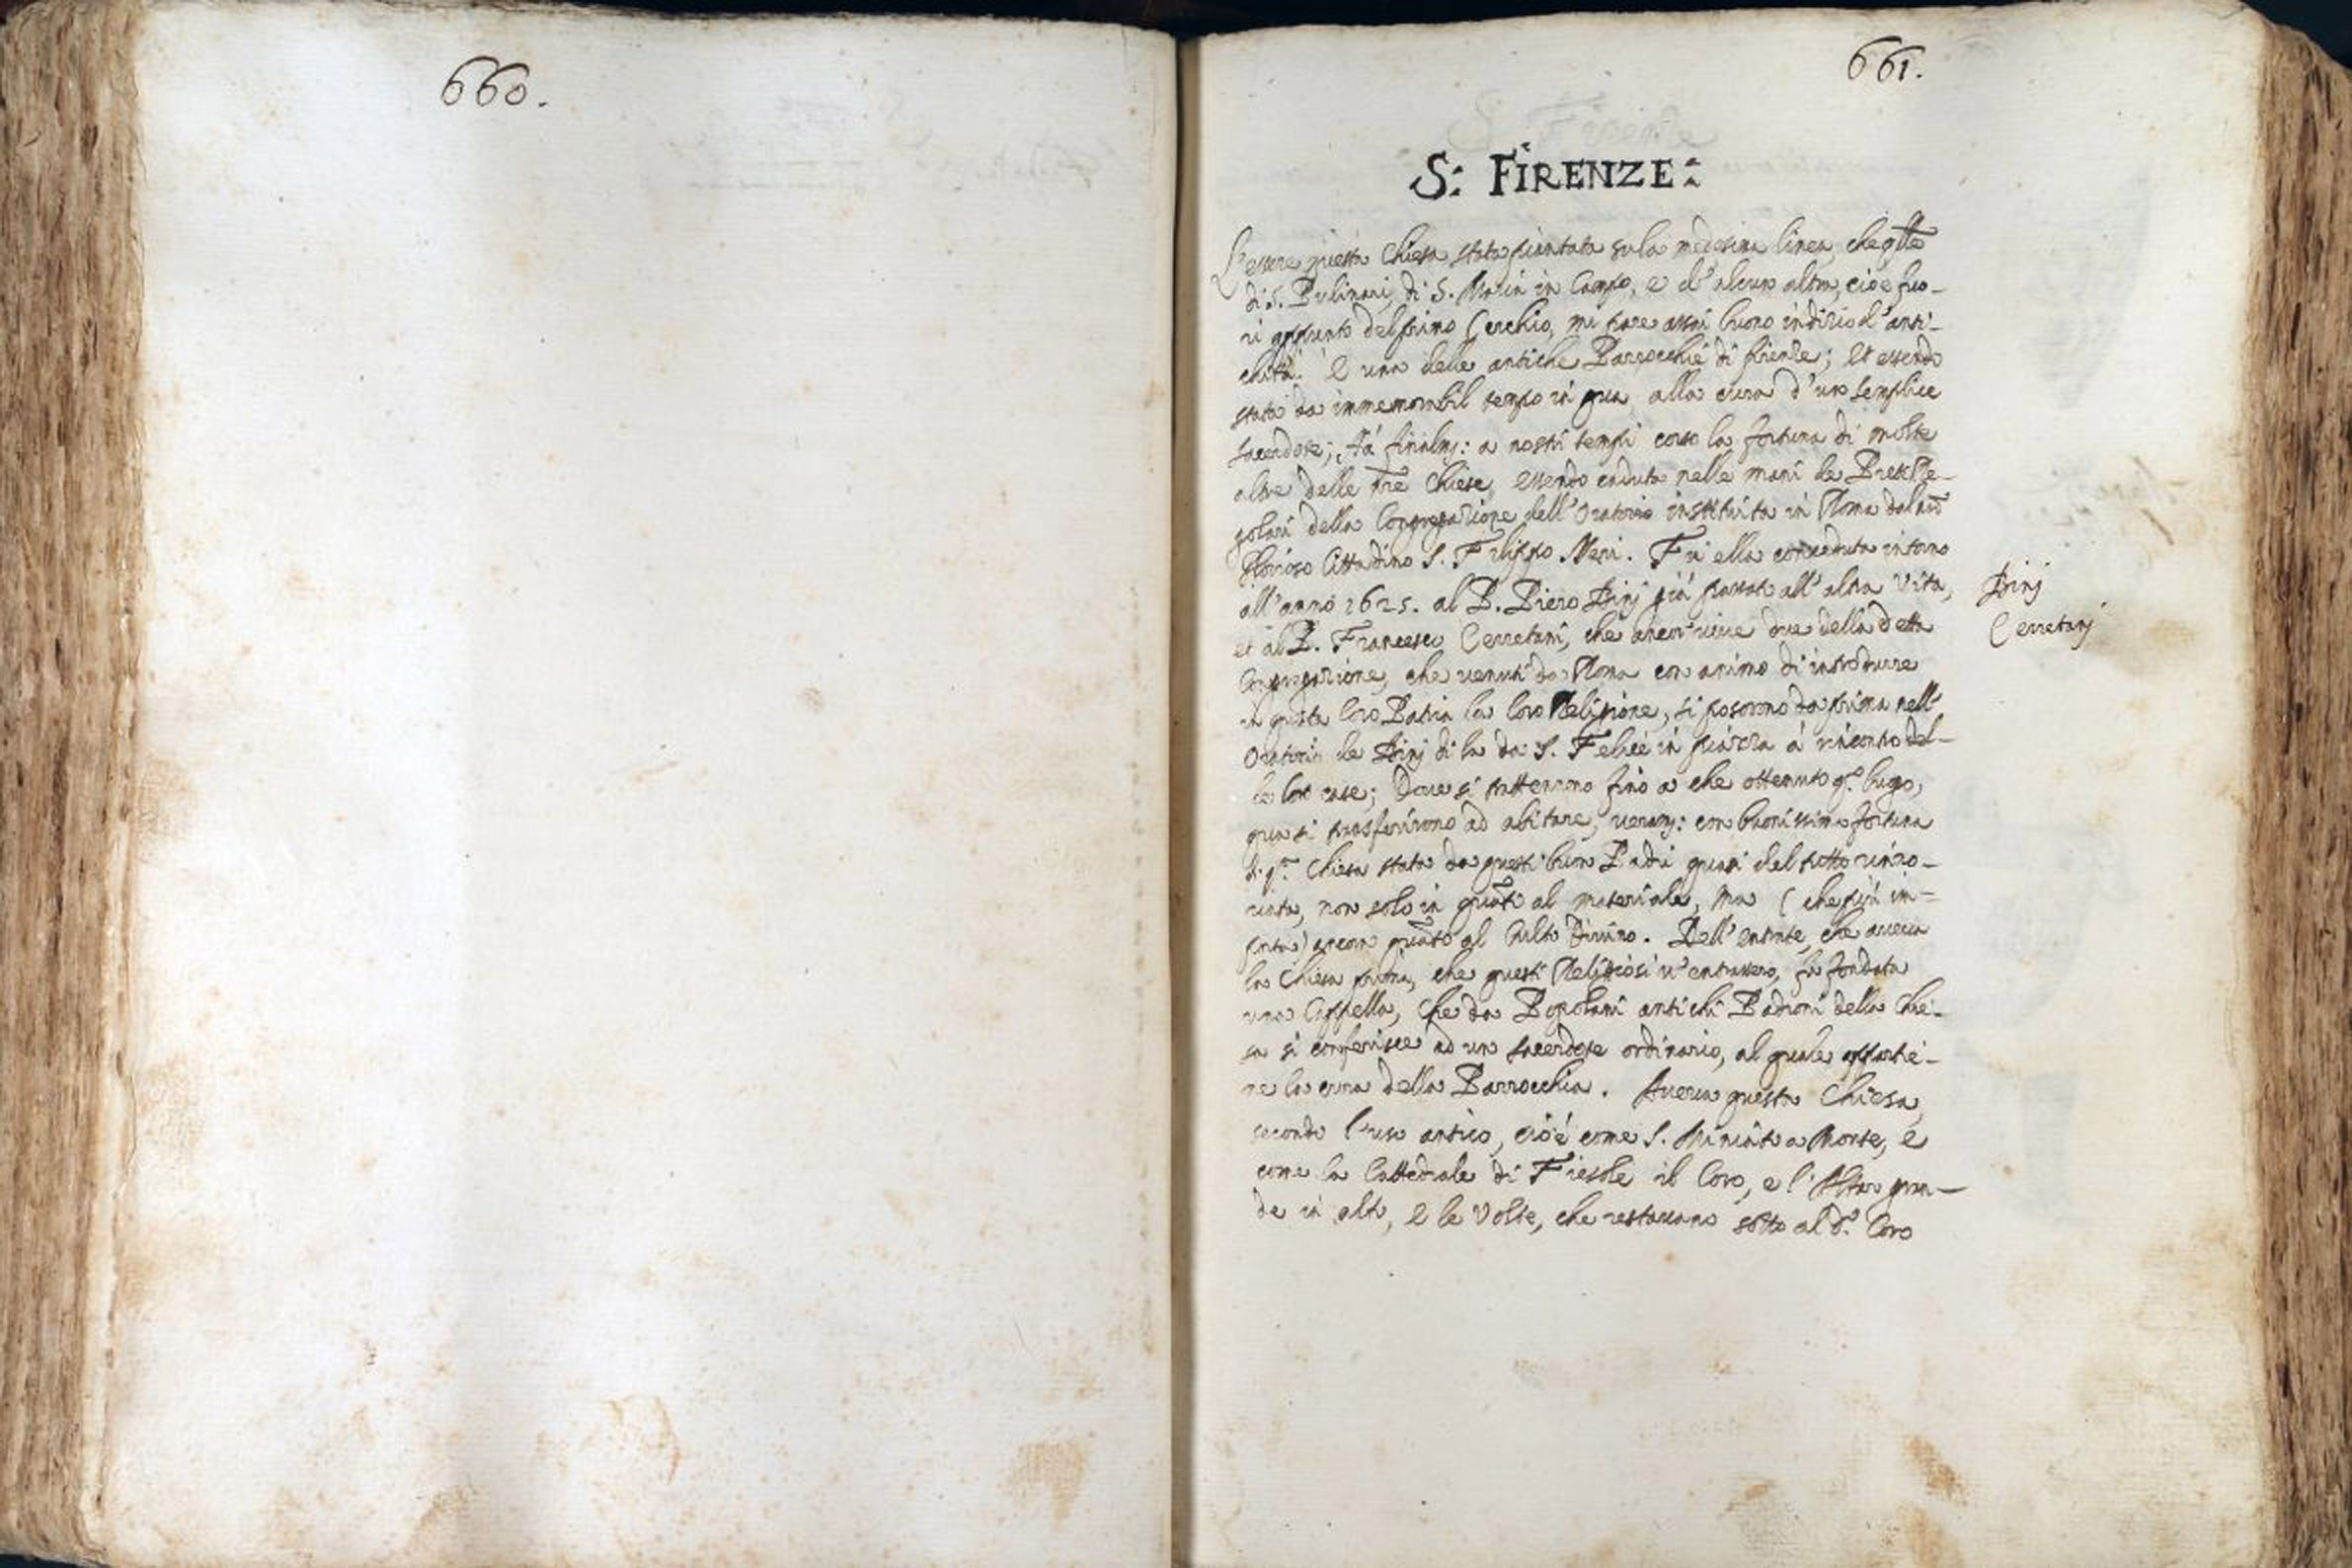 660.
661.
S: FIRENZE:
L'essere questa Chiesa stata piantata sula medesima linea, che q̃lle
di S. Pulinari, di S. Maria in Campo, e d'alcun altra, cioè fuo-
ri appunto del primo Cerchio, mi pare assai buono indizio d'anti-
chità. È una delle antiche Parrocchie di firenze; Et essendo
stata da immemorabil tempo in qua alla cura d'un semplice
sacerdote; Hà finalm: a nostri tempi corso la fortuna di molte
altre delle nr̃e Chiese, essendo caduta nelle mani de Preti Re-
golari della Congregazione dell'Oratorio instituita in Roma dal nr̃o
glorioso Cittadino S. Filippo Neri. Fu ella conceduta intorno
all'anno 1625. al P. Piero Binj già passato all'altra Vita,
et al P. Francesco Cerretani, che ancor vive due della detta
Congregazione, che venuti da Roma con animo di introdurre
in questa loro Patria la loro Religione, si posorono da prima nell'
Oratorio de Binj di la da S. Felice in piazza à rincontro del-
le lor case; Dove si trattennono fino a che ottenuto q.º luogo,
qua si trasferirono ad abitare, veram: con buonissima fortuna
di q.ª Chiesa stata da questi buon Padri quasi del tutto rinno-
vata, non solo in quãto al materiale, ma (che più im-
porta) ancora quãto al Culto Divino. Dell'entrate, che aveva
la Chiesa prima, che questi Religiosi v'entrassero, fu fondata
una Cappella, che da Popolani antichi Padroni della Chie-
sa si conferisce ad un sacerdote ordinario, al quale appartie-
ne la cura della Parrocchia. Aveva questa Chiesa,
secondo l'uso antico, cioè come S. Miniato a Monte, e
come la Cattedrale di Fiesole il Coro, e l'Altar gran-
de in alto, e le Volte, che restavano sotto al d.º Coro
Binj
Cerretanj